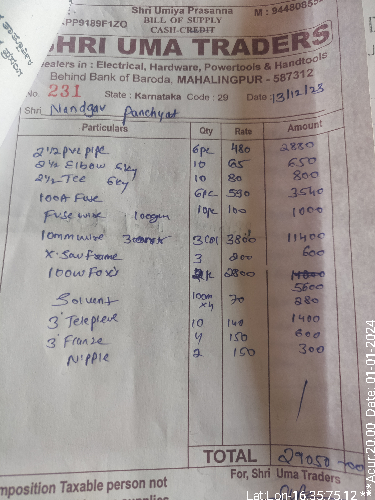 Shri Umiya Prasanna M : 94480855
APP9189F1ZQ BILL OF SUPPLY
CASH-CREDIT
SHRI UMA TRADERS
Dealers in : Electrical, Hardware, Powertools & Handtools
Behind Bank of Baroda, MAHALINGPUR - 587312
No. 231 State : Karnataka Code : 29 Date : 13/12/23
Shri Nandgav Panchyat
Particulars Qty Rate Amount
2 1/2 pvc pipe 6pc 480 2880
2 1/2 Elbow 6kg 10 65 650
2 1/2 Tee 6kg 10 80 800
100A Fuse 6pc 590 3540
Fuse wire 100gm 10pc 100 1000
10mm wire 3 Coil 3800 11400
X. Saw frame 3 200 600
100W 2800 5600
Solvent 100m x4 70 280
3" 10 140 1400
3" 4 150 600
Nipple 2 150 300
TOTAL 29050-00
For, Shri Uma Traders
mposition Taxable person not
Lat:Lon-16.3575512
***Acur 20.00 Date: 01-01-2024